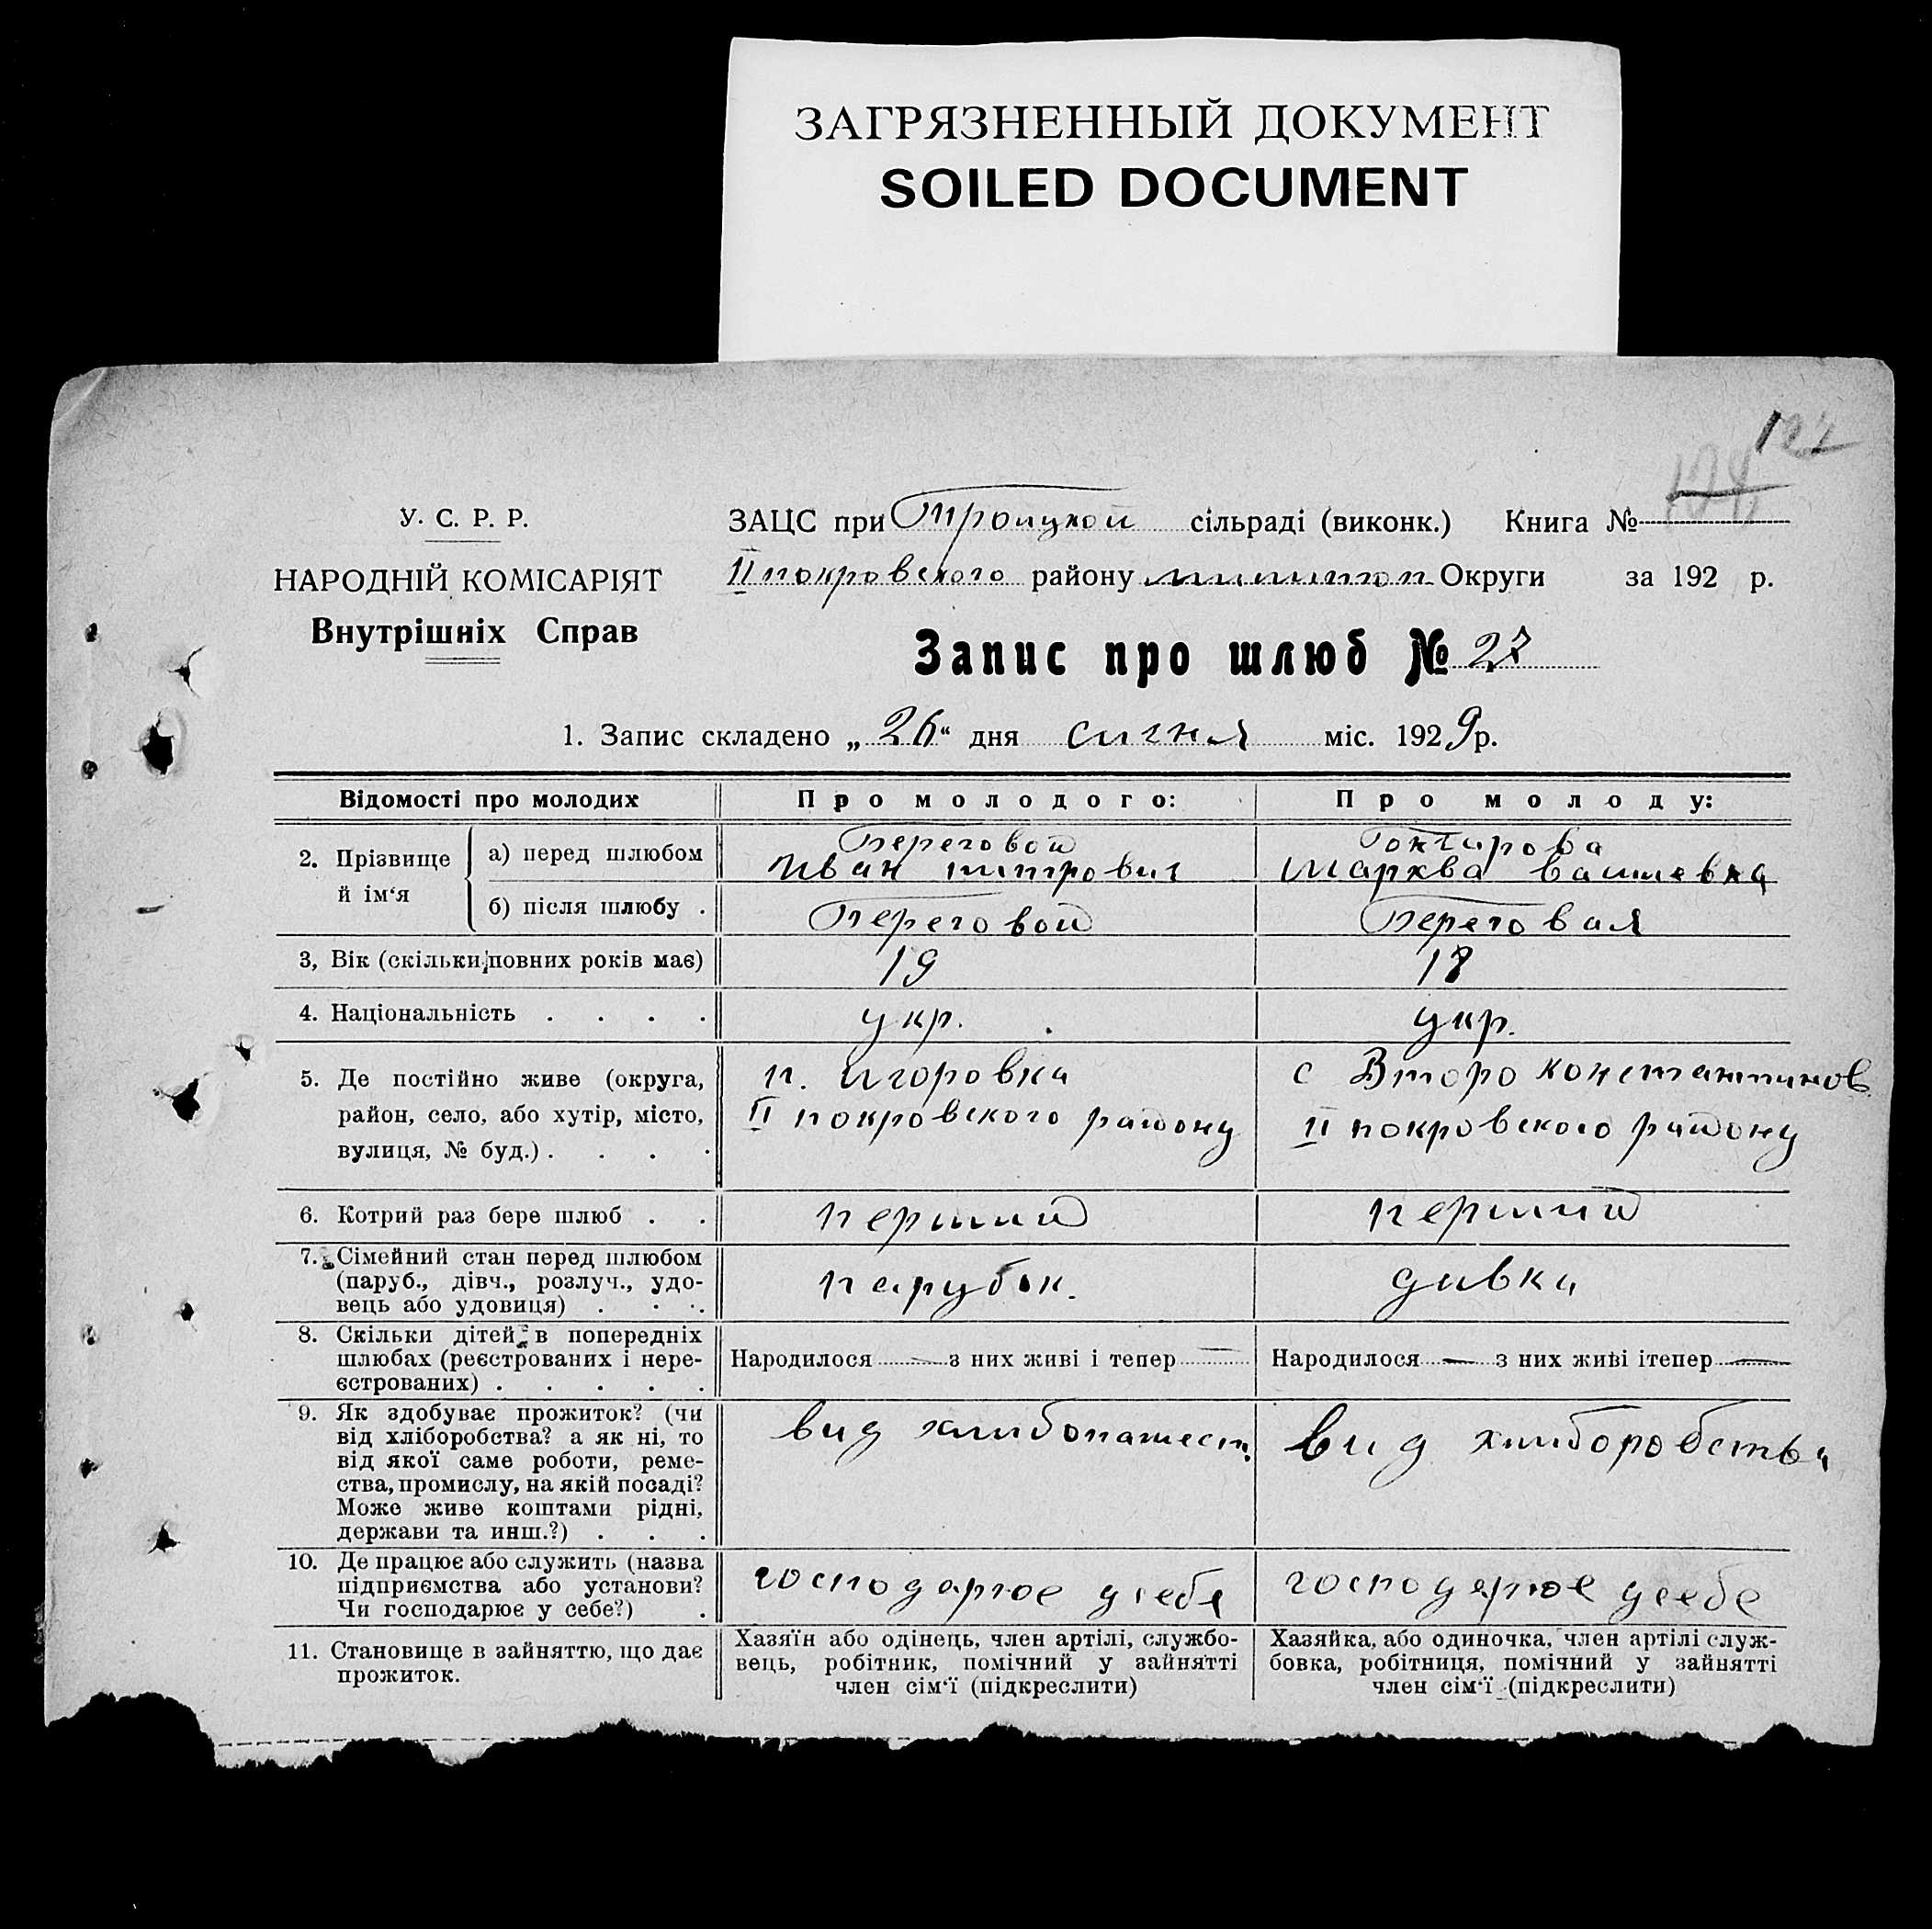 ЗАГРЯЗНЕННЫЙ ДОКУМЕНТ
SOILED DOCUMENT
У. С. Р. Р.
НАРОДНІЙ КОМІСАРІЯТ
Внутрішніх Справ
122
ЗАЦС при Троицкой сільраді (виконк.) Книга №
II покровского району Округи за 192 р.
Запис про шлюб № 27
1. Запис складено „26“ дня сичня міс. 1929 р.
Відомості про молодих
Про молодого:
Про молоду:
2. Прізвище й ім‘я
а) перед шлюбом
Береговой
Иван
Марква
б) після шлюбу .
Береговой
Береговая
3, Вік (скільки повних років має)
19
18
4. Національність . . . .
укр.
укр.
5. Де постійно живе (округа,
район, село, або хутір, місто,
вулиця, № буд.) . . . .
п. Игоровка
II покровского району
с Второ константинов
II покровского району
6. Котрий раз бере шлюб . .
перший
перший
7. Сімейний стан перед шлюбом
(паруб., дівч., розлуч., удо-
вець або удовиця) . . .
парубок.
дивка
8. Скільки дітей в попередніх
шлюбах (реєстрованих і нере-
єстрованих) . . . . .
Народилося — з них живі і тепер —
Народилося — з них живі ітепер —
9. Як здобуває прожиток? (чи
від хліборобства? а як ні, то
від якої саме роботи, реме-
ства, промислу, на якій посаді?
Може живе коштами рідні,
держави та инш.?) . . .
вид
вид хлиборобства
10. Де працює або служить (назва
підприємства або установи?
Чи господарює у себе?) .
господарює усебе
господарює усебе
11. Становище в зайняттю, що дає
прожиток.
Хазяїн або одінець, член артілі, службо-
вець, робітник, помічний у зайнятті
член сім‘ї (підкреслити)
Хазяйка, або одиночка, член артілі служ-
бовка, робітниця, помічний у зайнятті
член сім‘ї (підкреслити)